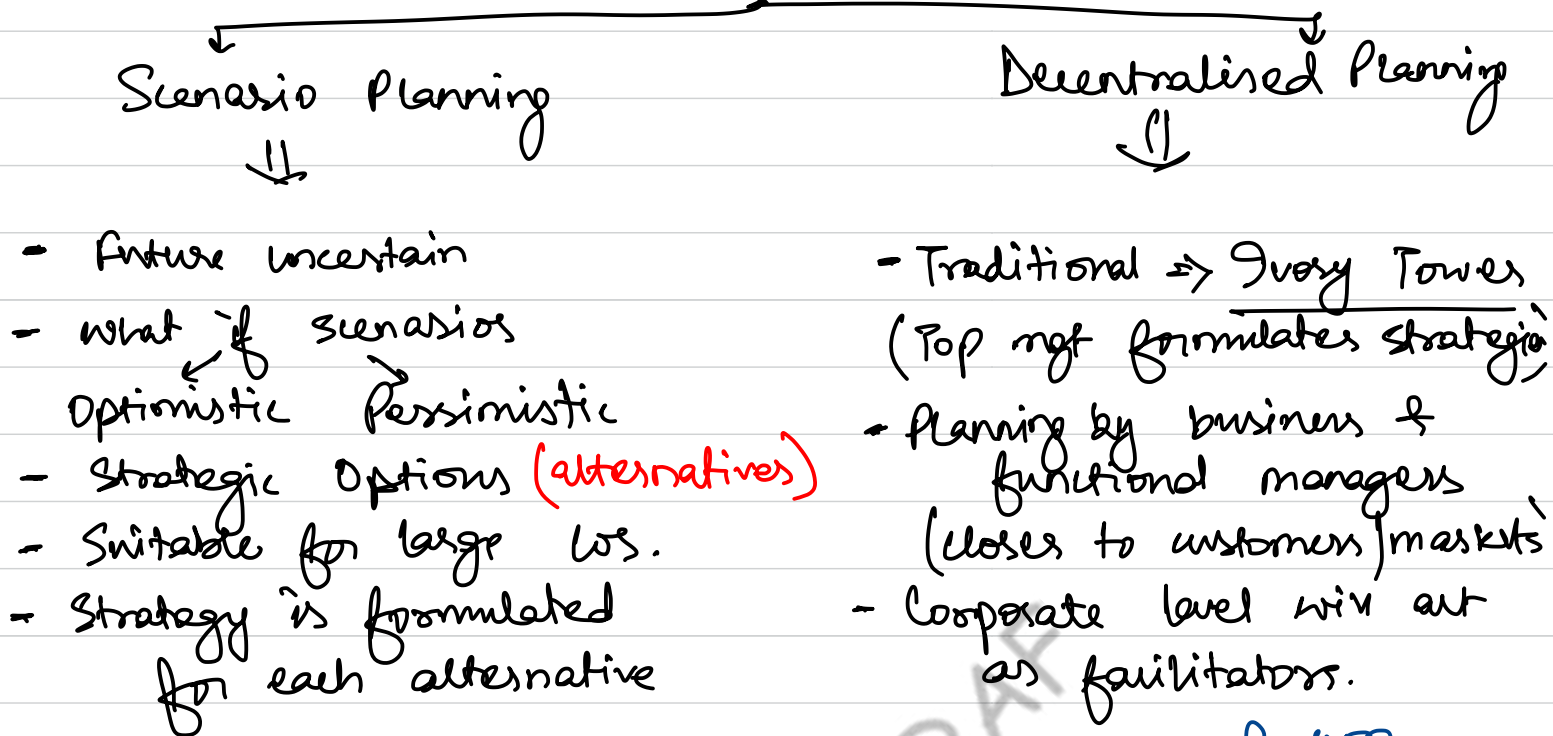 Scenario Planning
- Future uncertain
- what if scenarios
Optimistic Pessimistic
- Strategic Options (alternatives)
- Suitable for large cos.
- Strategy is formulated
for each alternative
Decentralised Planning
- Traditional ⇒ Ivory Tower
(Top mgt formulates strategies)
- Planning by business &
functional managers
(closer to customers/markets)
- Corporate level will act
as facilitators.